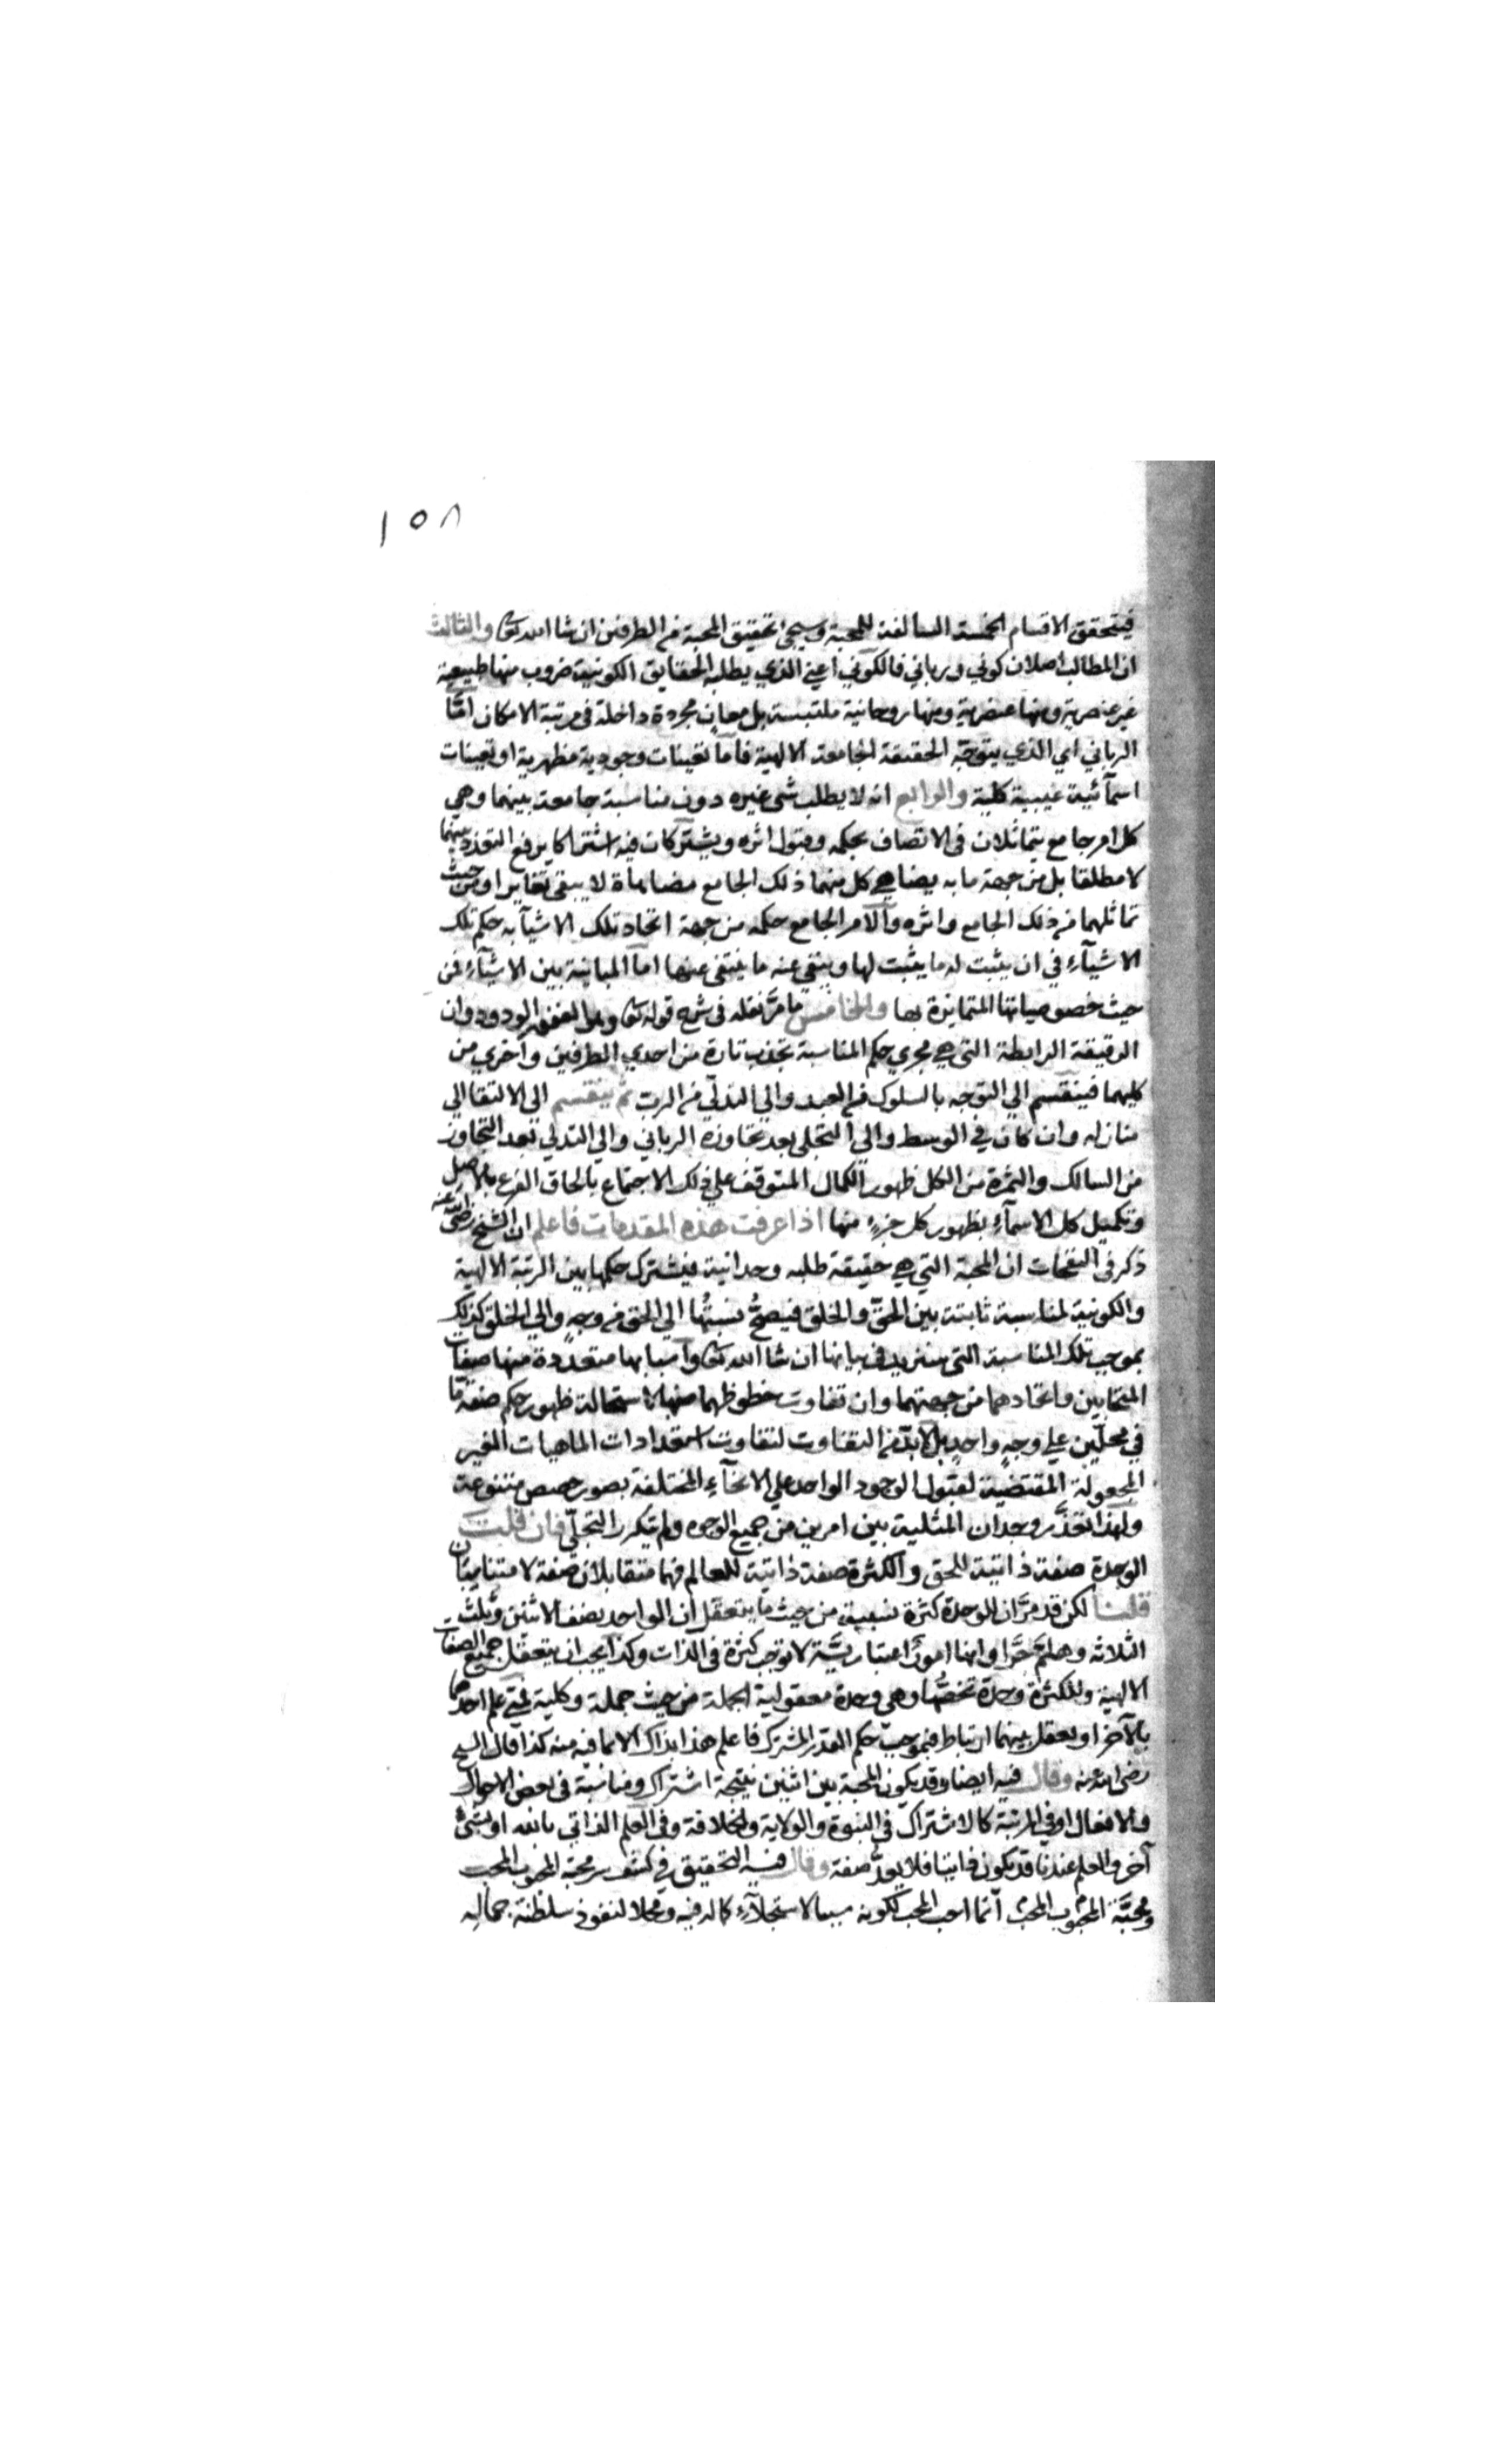 ١٥٨
فيتحقق الاقسام الخمسة السالفة للمحبة وسيجئ تحقيق المحبة من الطرفين ان شا الله تعا والثالث
ان المطالب اصلان كوني ورباني فالكوني اعني الذي يطلبه الحقايق الكونية ضروب منها طبيعية
غير عنصرية ومنها عنصرية ومنها روحانية ملتبسة بل معانٍ مجردة داخلة في مرتبة الامكان امّا
الرباني اي الذي يتوجّه الحقيقة الجامعة الالهية فاما تعينات وجودية مظهرية او تعينات
اسمآئية غيبية كلية والرابع انه لا يطلب شئ غيره دون مناسبة جامعة بينهما وهي
كل امر جامع يتماثلان في الاتصاف بحكمه وقبول اثره ويشتركان فيه اشتراكا يرفع التعدد بينهما
لا مطلقا بل من جهة ما به يضاهي كل منهما ذلك الجامع مضاهاة لا يبقى تغايرا ومن حيث
تماثلهما من ذلك الجامع واثره والامر الجامع حكمه من جهة اتحاد تلك الاشيآء به حكم تلك
الاشيآء في ان يثبت له ما يثبت لها وينتفي عنه ما ينتفي عنها اما المباينة بين الاشيآء فمن
حيث خصوصياتها المتمايزة بها والخامس ما مرّ نقله في شرح قوله تعا وهو الغفور الودود وان
الرقيقة الرابطة التي هي مجري حكم المناسبة تجذب تارة من احدي الطرفين واخري من
كليهما فينقسم الي التوجه بالسلوك من العبد والي التدلّي من الرب ثم ينقسم الي الالتقا الي
منازله وان كان في الوسط والي التجلي بعد تجاوزه الرباني والي التدلي بعد التجاوز
من السالك والثمرة من الكل ظهور الكمال المتوقف علي ذلك الاجتماع بالحاق الفرع بالاصل
وتكميل كل الاسمآء بظهور كل جزءٍ منها اذا عرفت هذه المقدمات فاعلم ان الشيخ رضي الله عنه
ذكر في النفحات ان المحبة التي هي حقيقة طلبه وحدانية فيشترك حكمها بين الرتبة الالهية
والكونية لمناسبة ثابتة بين الحقّ والخلق فيصحُّ نسبتُها الي الحق من وجهٍ والي الخلق كذلك
بموجب تلك المناسبة التي سنزيد في بيانها ان شا الله تعا واسبابها متعددة منها صفات
المتحابين واتحادهما من جهتهما وان تفاوت حظوظهما منها لاستحالة ظهور حكم صفةٍ مّا
في محلّين علي وجهٍ واحدٍ بل لابدّ من التفاوت لتفاوت استعدادات الماهيات الغير
المجعولة المقتضية لقبول الوجود الواحد علي الانحآء المختلفة بصور حصص متنوعة
ولهذا تعذّر وجدان المثلية بين امرين من جميع الوجوه ولم يتكرر التجلّي فان قلت
الوحدة صفة ذاتية للحق والكثرة صفة ذاتية للعالم فهما متقابلان صفة لا متناسبتان
قلنا لكن قد مرّ ان للوحدة كثرة نسبية من حيث ما يتعقّل ان الواحد نصف الاثنين وثلث
الثلاثه وهلمّ جرّا وانها امورٌ اعتباريّة لا توجب كثرة في الذات وكذا يجب ان يتعقل جميع الصفات
الالهية وللكثرة وحدة تخصُّها وهي وحدة معقولية الجملة من حيث جملة وكلية فمتي علم احدهما
بالآخر او تعقل بينهما ارتباط فبموجب حكم القدر المشترك فاعلم هذا بذاك الا بما فيه منه كذا قال الشيخ
رضي الله عنه وقال فيه ايضا وقد يكون المحبة بين اثنين نتيجة اشتراك ومناسبة في بعض الاحوال
والافعال او في المرتبة كالاشتراك في النبوة والولاية والخلافة وفي العلم الذاتي بالله او بشئ
آخر والعلم عندنا قد يكون ذاتيا فلا يعدُّ صفة وقال فيه التحقيق في كشف سر محبة المحبوب المحب
ومحبّة المحبوب المحبَّ انما احب المحب لكونه سببا لاستجلآء كماله فيه ومحلا لنفوذ سلطنة جماله